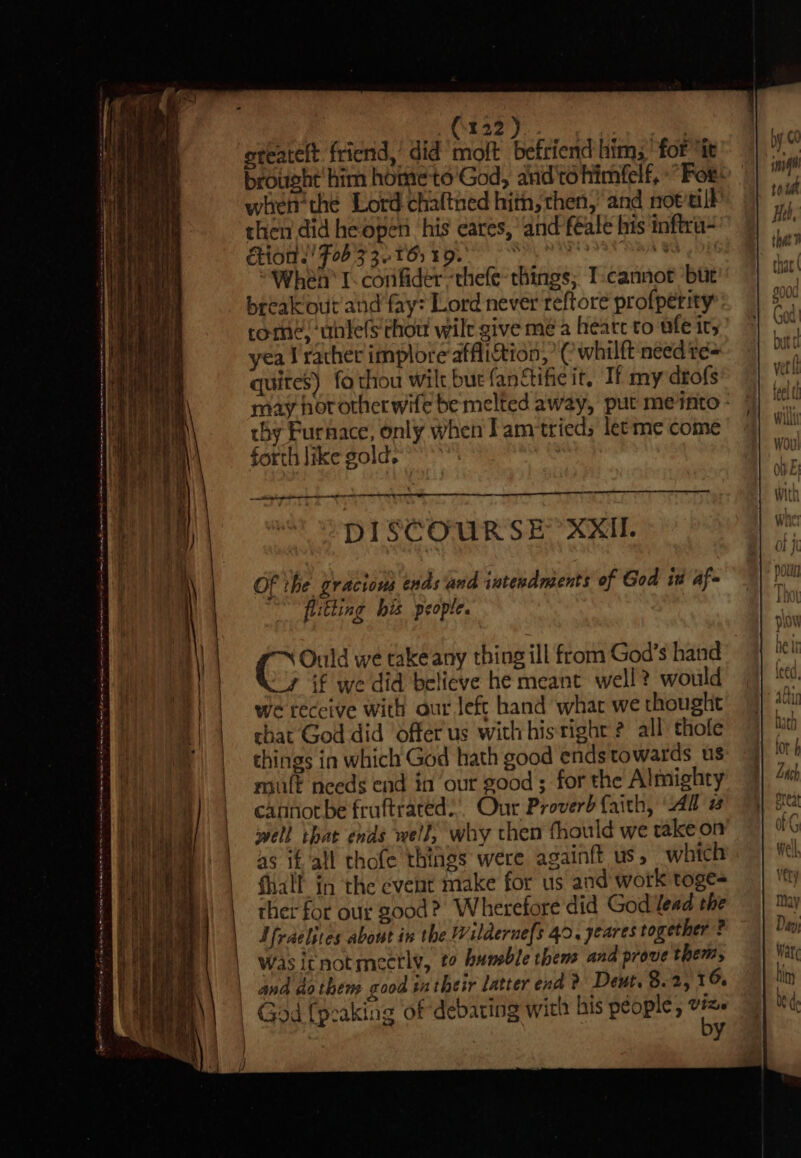 (122)
greateſt friend, did moſt befriend him; for it
brought him home to God, and to himſelf, For
when the Lord chaſtned him, then, and not till
then did he open his eares, and ſeale his inſtru-
ction. Job 33. 16, 19.
When I conſider theſe things, I cannot but
break out and ſay: Lord never reſtore proſperity
to me, unleſs thou wilt give me a heart to uſe it,
yea I rather implore affliction, (whilſt need re-
quires) ſo thou wilt but ſanctifie it. If my droſs
may not otherwiſe be melted away, put me into
thy Furnace, only when I am tried, let me come
forth like gold.
DISCOURSE XXII.
Of the gracious ends and intendments of God in af-
flicting his people.
Could we take any thing ill from God's hand
if we did believe he meant well? would
we receive with our left hand what we thought
that God did offer us with his right? all thoſe
things in which God hath good ends towards us
muſt needs end in our good; for the Almighty
cannot be fruſtrated. Our Proverb ſaith, All is
well that ends well, why then ſhould we take on
as if all thoſe things were againſt us, which
ſhall in the event make for us and work toge-
ther for our good? Wherefore did God lead the
Iſraelites about in the Wilderneſs 40. yeares together?
Was it not meerly, to humble them and prove them,
and do them good in their latter end? Deut. 8. 2, 16.
God ſpeaking of debating with his people, viz.
by